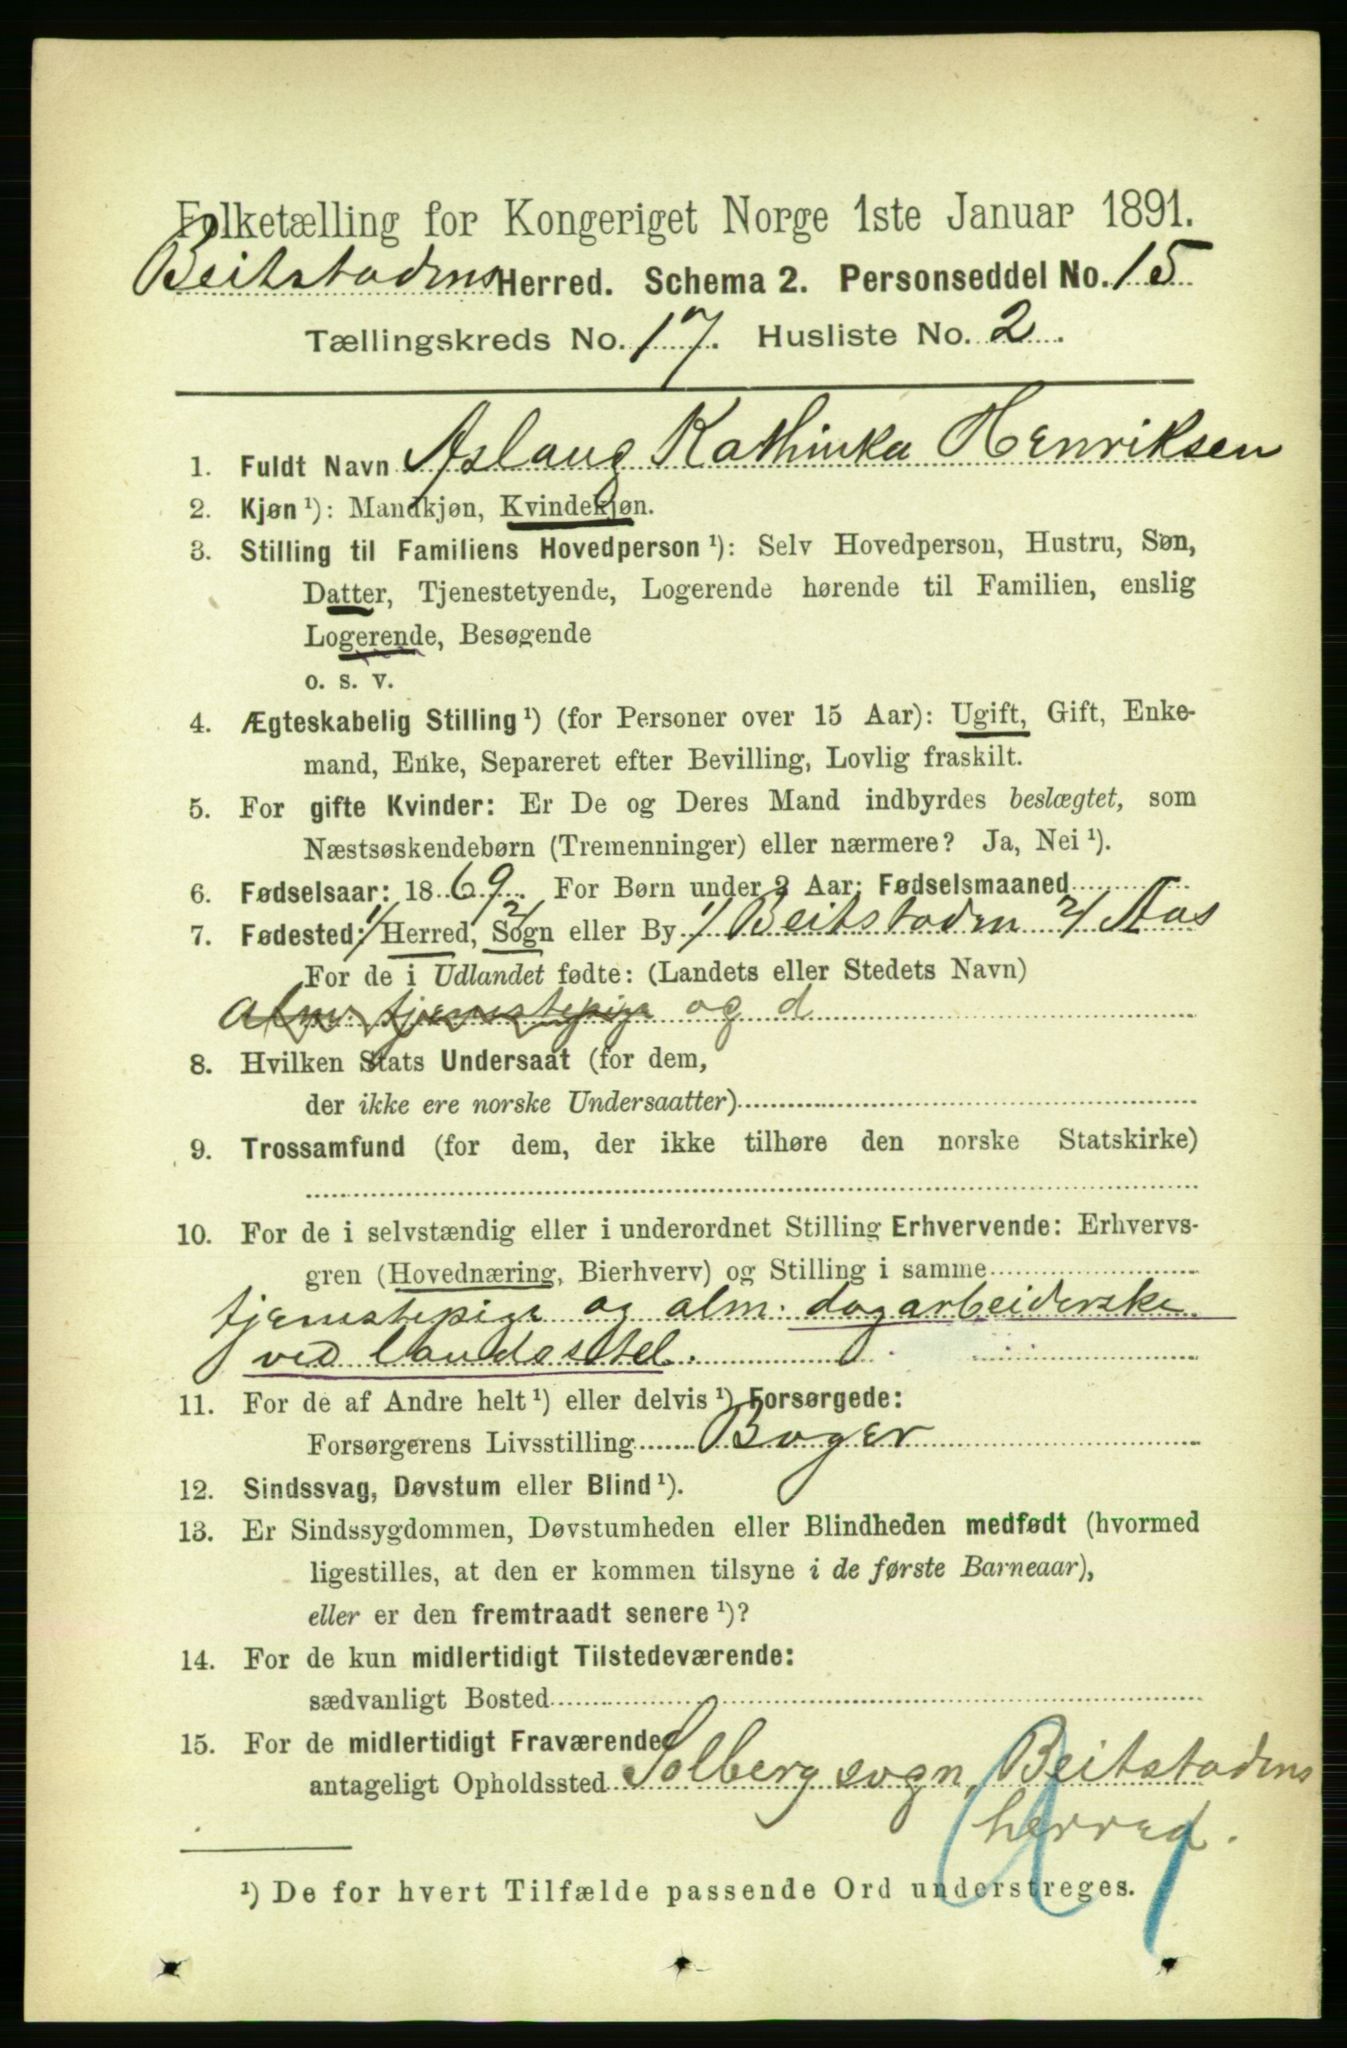 Folketælling for Kongeriget Norge 1ste Januar 1891.
Beitstadens Herred. Schema 2. Personseddel No. 15
Tællingskreds No. 17. Husliste No. 2.
1. Fuldt Navn Aslaug Kathinka Henriksen
2. Kjøn ¹): Mandkjøn, Kvindekjøn.
3. Stilling til Familiens Hovedperson ¹): Selv Hovedperson, Hustru, Søn,
Datter, Tjenestetyende, Logerende hørende til Familien, enslig
Logerende, Besøgende
o. s. v.
4. Ægteskabelig Stilling ¹) (for Personer over 15 Aar): Ugift, Gift, Enke-
mand, Enke, Separeret efter Bevilling, Lovlig fraskilt.
5. For gifte Kvinder: Er De og Deres Mand indbyrdes beslægtet, som
Næstsøskendebørn (Tremenninger) eller nærmere? Ja, Nei ¹).
6. Fødselsaar: 1869. For Børn under 2 Aar: Fødselsmaaned
7. Fødested: 1/ Herred, 2/ Sogn eller By 1/ Beitstaden 2/ Aas
For de i Udlandet fødte: (Landets eller Stedets Navn)
alm: tjenestepige og d
8. Hvilken Stats Undersaat (for dem,
der ikke ere norske Undersaatter)
9. Trossamfund (for dem, der ikke tilhøre den norske Statskirke)
10. For de i selvstændig eller i underordnet Stilling Erhvervende: Erhvervs-
gren (Hovednæring, Bierhverv) og Stilling i samme
tjenestepige og alm: dagarbeiderske
ved landsstel.
11. For de af Andre helt ¹) eller delvis ¹) Forsørgede:
Forsørgerens Livsstilling Bager
12. Sindssvag, Døvstum eller Blind ¹).
13. Er Sindssygdommen, Døvstumheden eller Blindheden medfødt (hvormed
ligestilles, at den er kommen tilsyne i de første Barneaar),
eller er den fremtraadt senere ¹)?
14. For de kun midlertidigt Tilstedeværende:
sædvanligt Bosted
15. For de midlertidigt Fraværende
antageligt Opholdssted Solberg sogn, Beitstadens
herred.
¹) De for hvert Tilfælde passende Ord understreges.